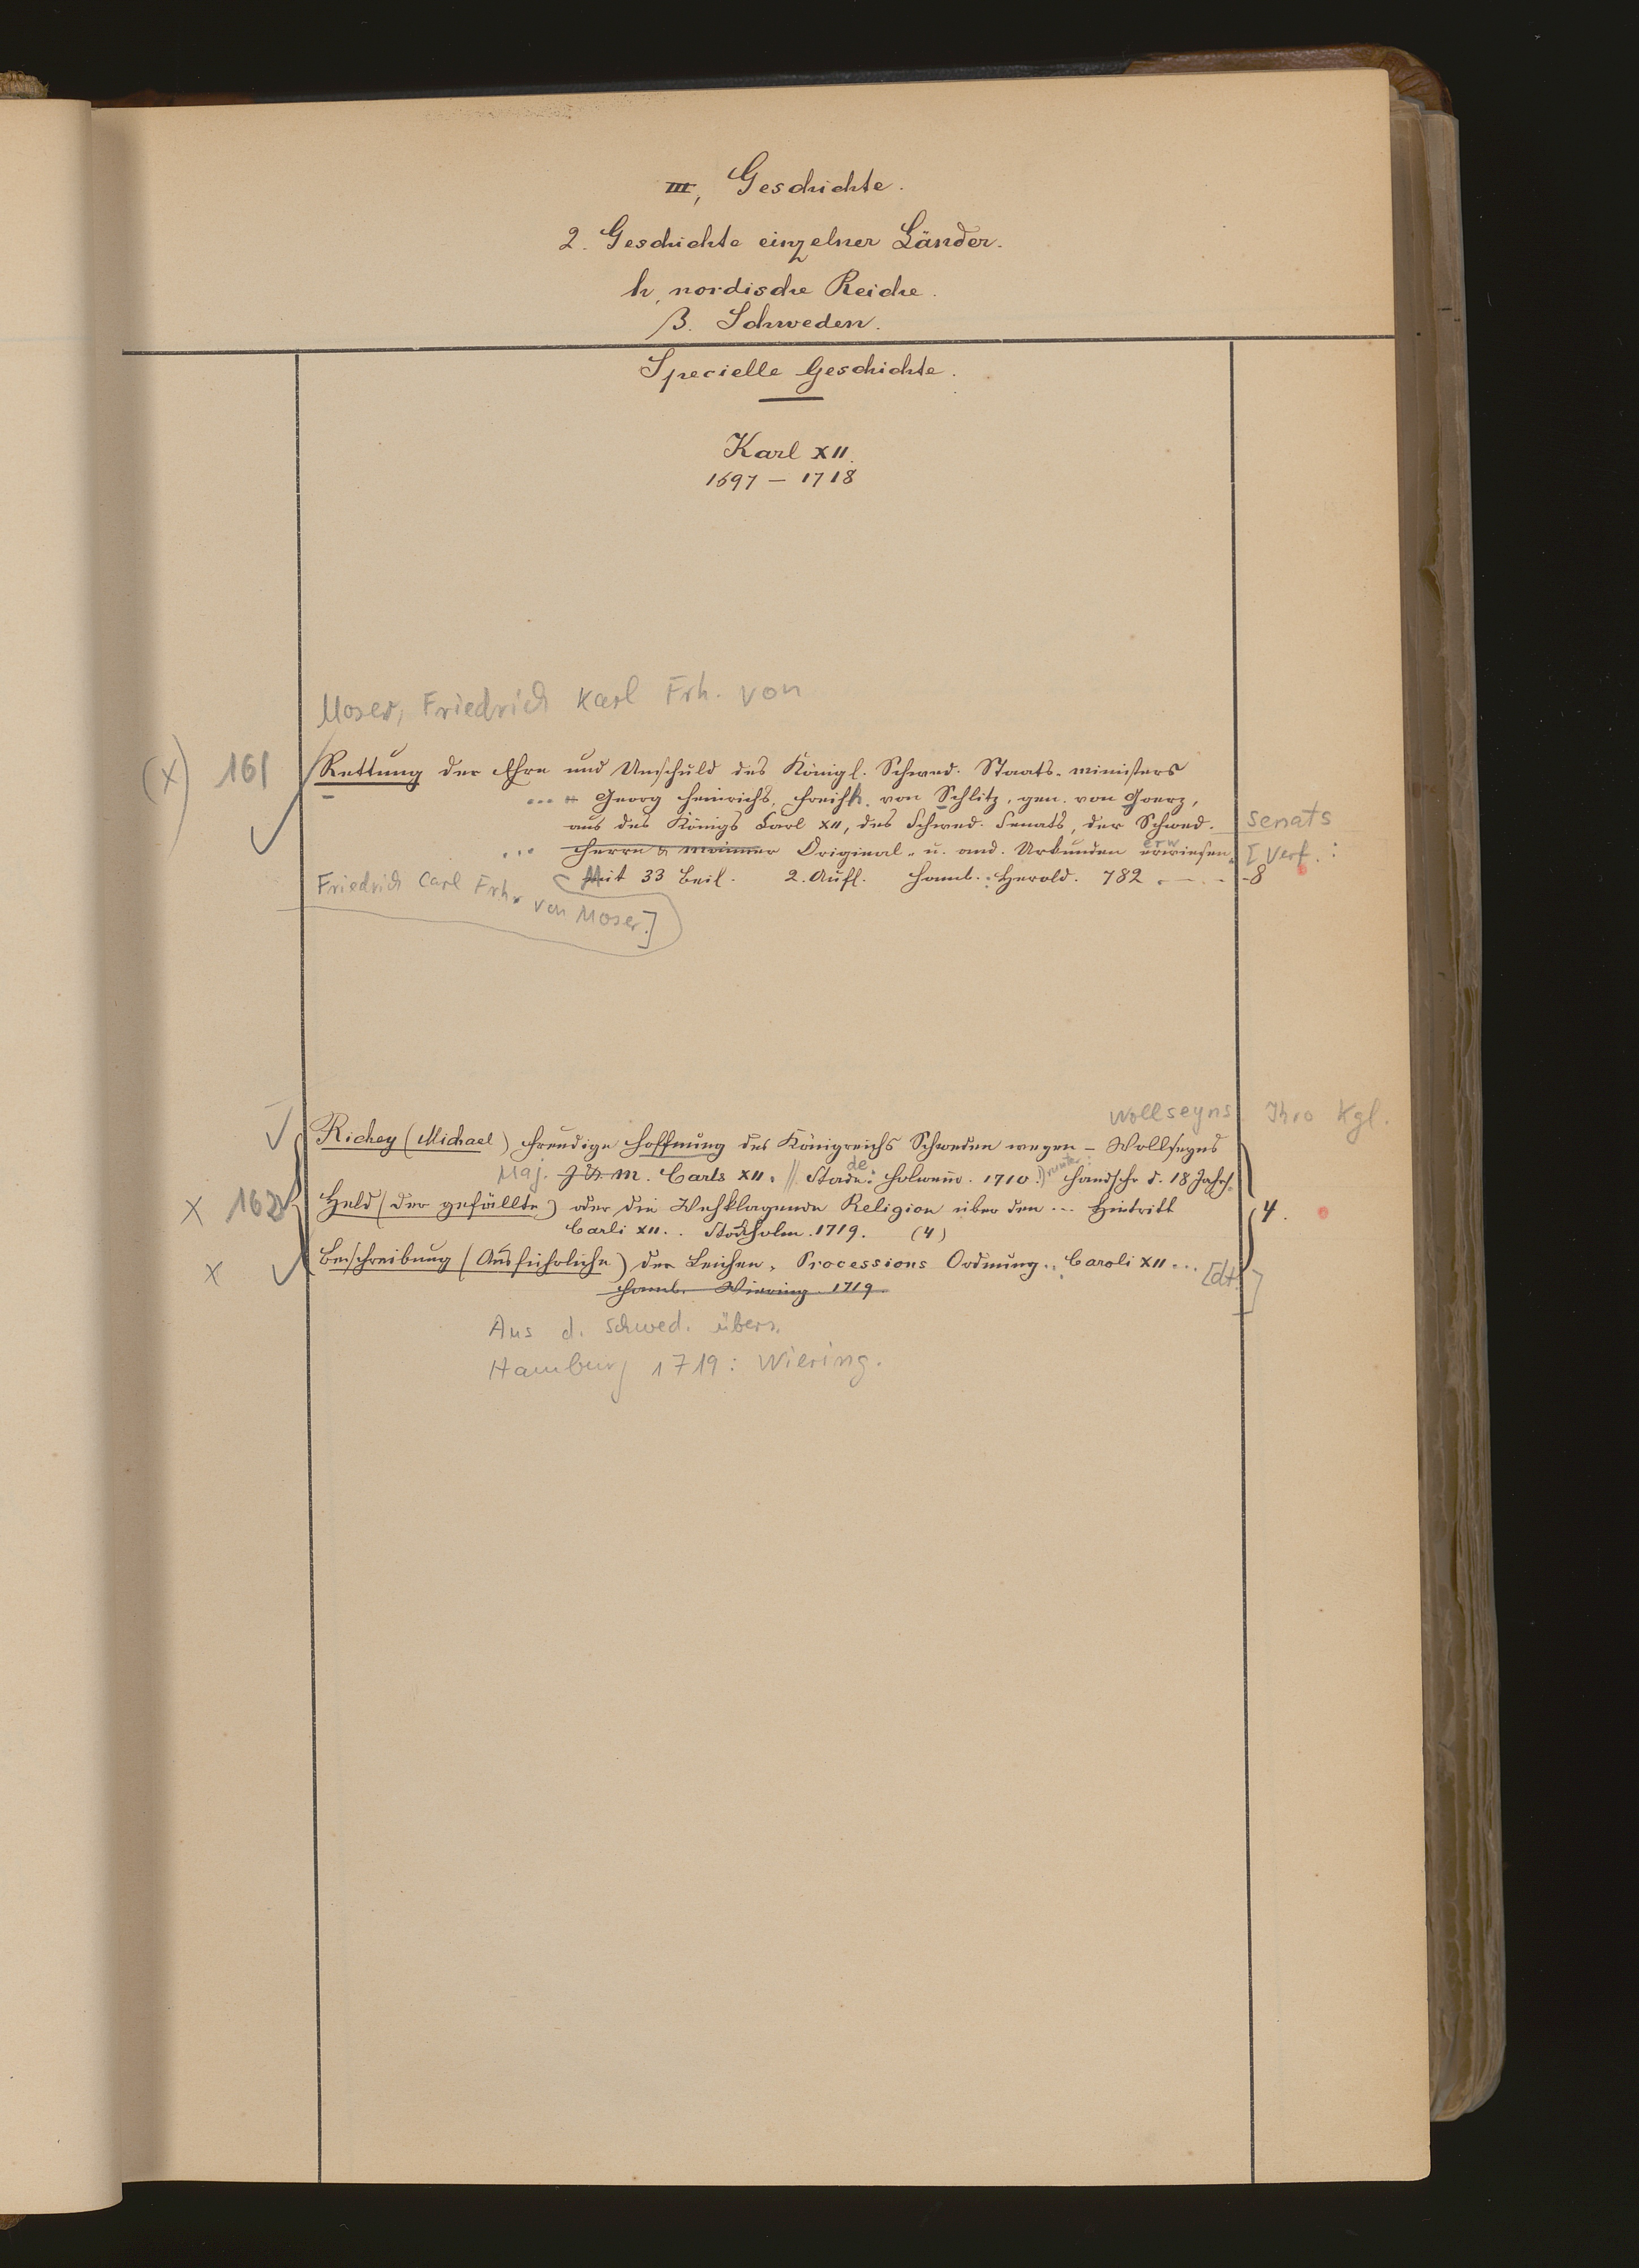 III, Geschichte.
2. Geschichte einzelner Länder.
h, nordische Reiche.
β. Schweden.
Specielle Geschichte.
Karl XII.
1697 – 1718
Moser, Friedrich Karl Frh. von
(x) 161 Rettung der Ehre und Unschuld des Königl. Schwed. Staats-ministers
... Georg Heinrichs, Freih. von Schlitz, gen. von Goerz,
aus des Königs Carl XII, des Schwed. Senats, der Schwed. Senats
... Herrn Original- u. and. Urkunden erwiesen. [Verf.:
Mit 33 Beil. 2. Aufl. Hamb.: Herold. 782 . — . - 8
Friedrich Carl Frh. von Moser.]
Wollseyns Ihro Kgl.
Richey (Michael) Freudige Hoffnung des Königreichs Schweden wegen – Wollseyns
Maj. J. K. M. Carls XII. // Stade: Holwein. 1710. Handschr d. 18 Jahrh.
x 162 Held (der gefällte) oder die Wehklagende Religion über den ... Hintritt 4.
Carli XII. . Stockholm. 1719. (4)
x Beschreibung (Ausführliche) der Leichen- Processions Ordnung .. Caroli XII ... [dt.]
Hamb. Wiering. 1719.
Aus d. Schwed. übers.
Hamburg 1719: Wiering.